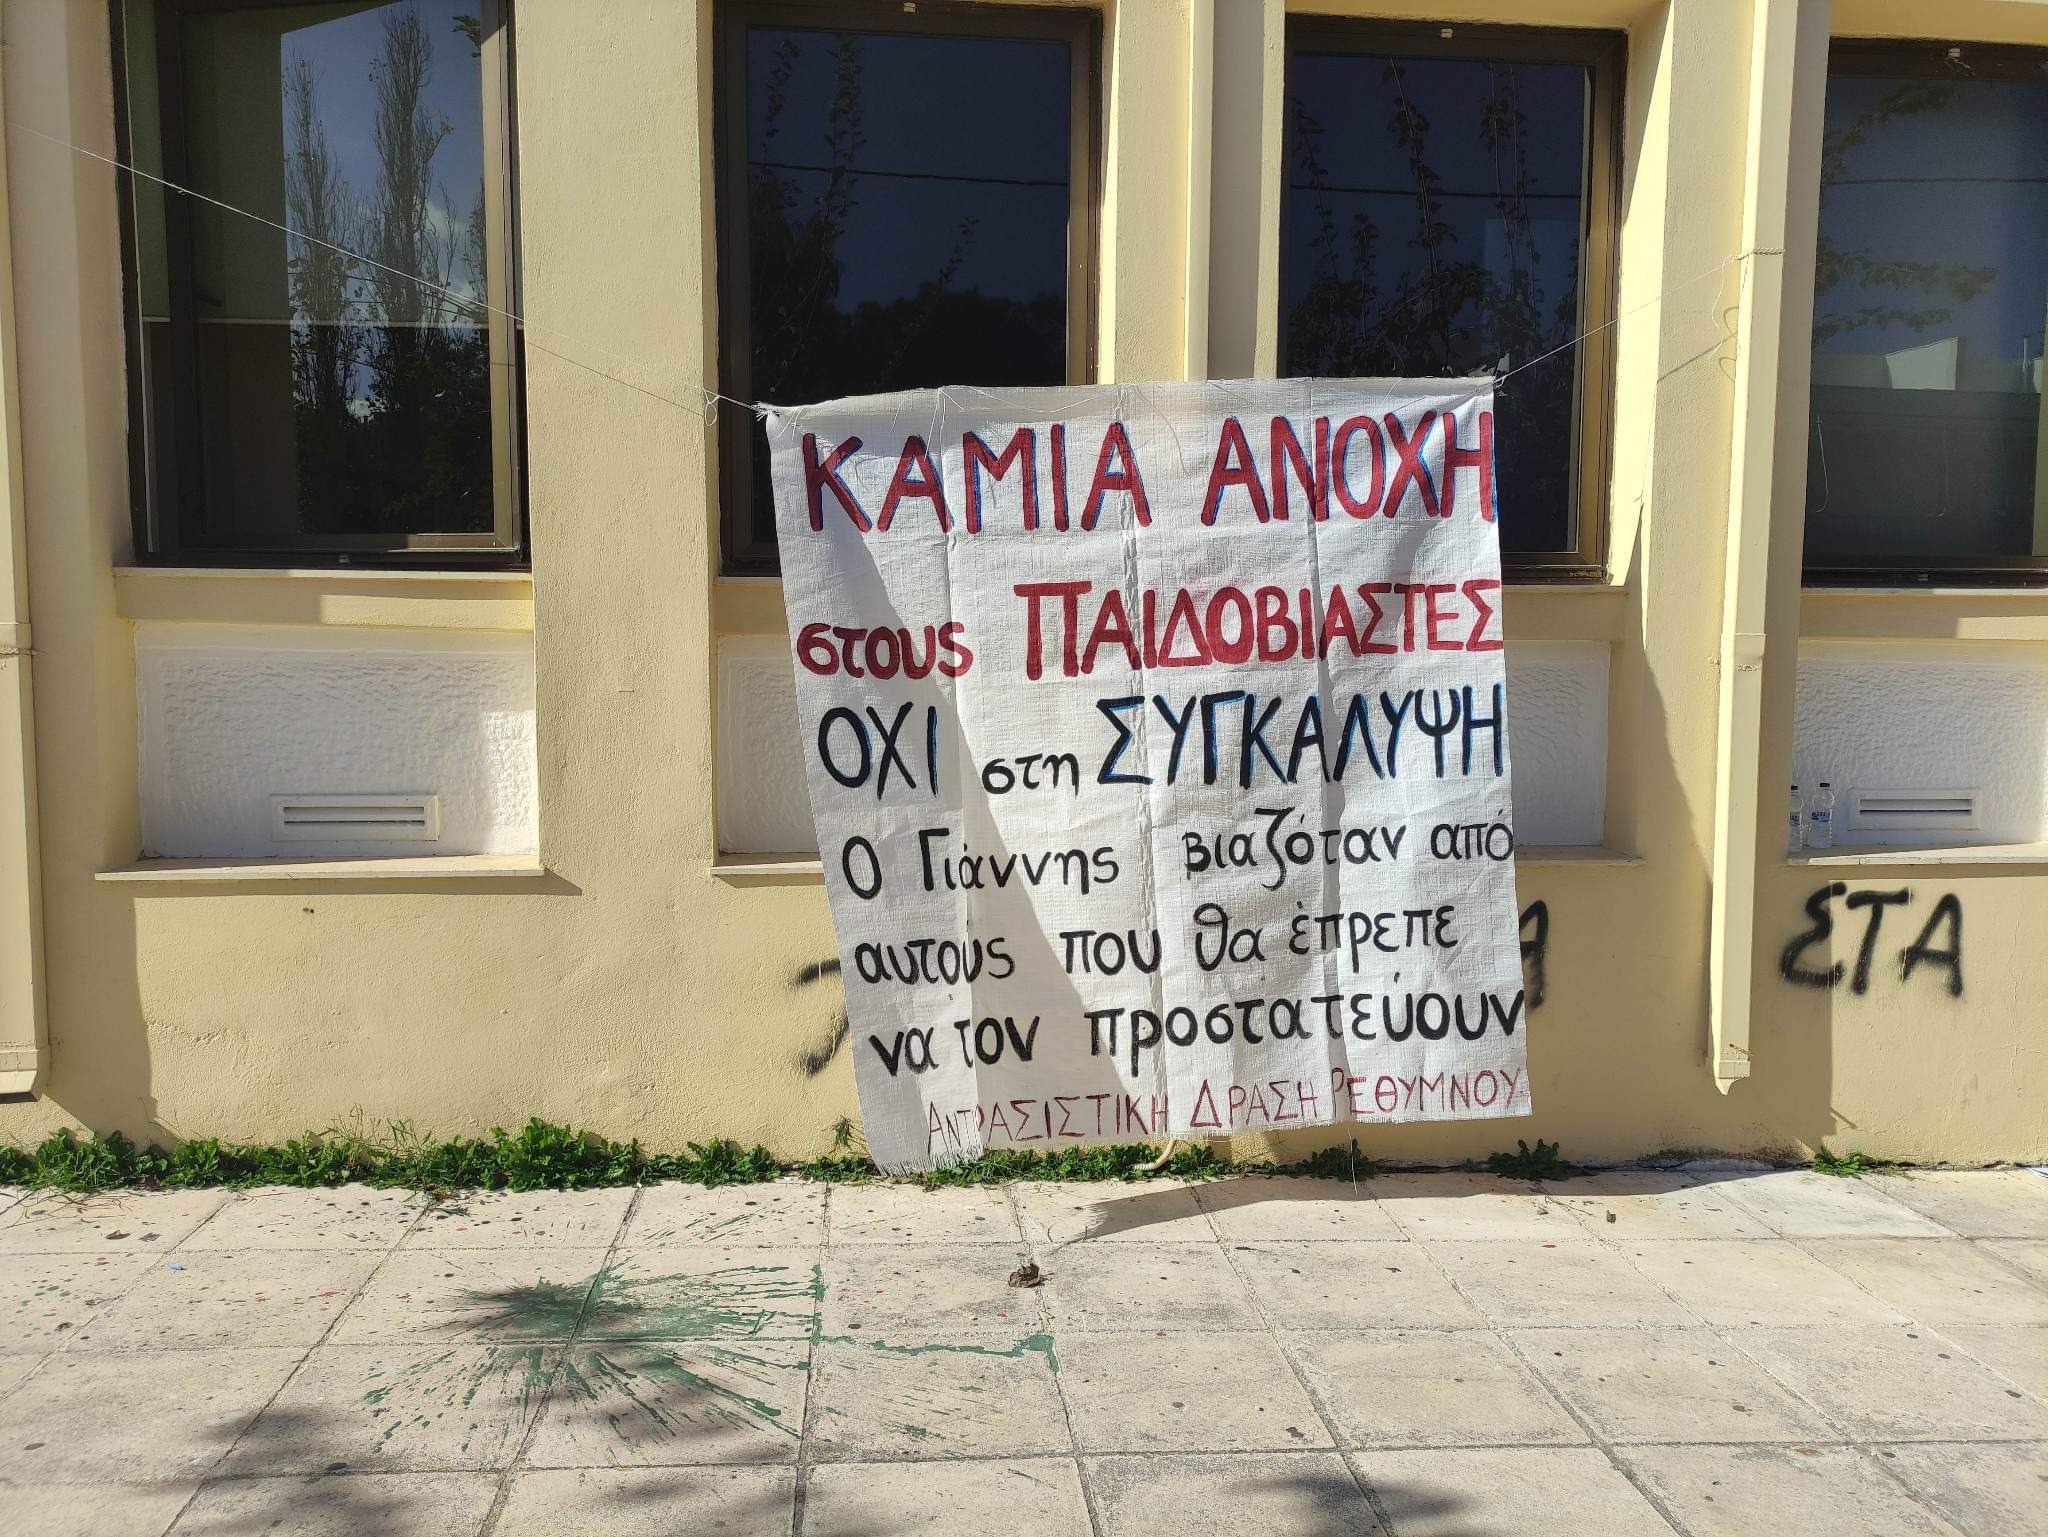 ΚΑΜΙΑ ΑΝΟΧΗ
στους ΠΑΙΔΟΒΙΑΣΤΕΣ
ΟΧΙ στη ΣΥΓΚΑΛΥΨΗ
Ο Γιάννης βιαζόταν από
αυτούς που θα έπρεπε
να τον προστατεύουν
ΑντιΡΑΣΙΣΤΙΚΗ ΔΡΑΣΗ ΡΕΘΥΜΝΟΥ
ΣΤΑ